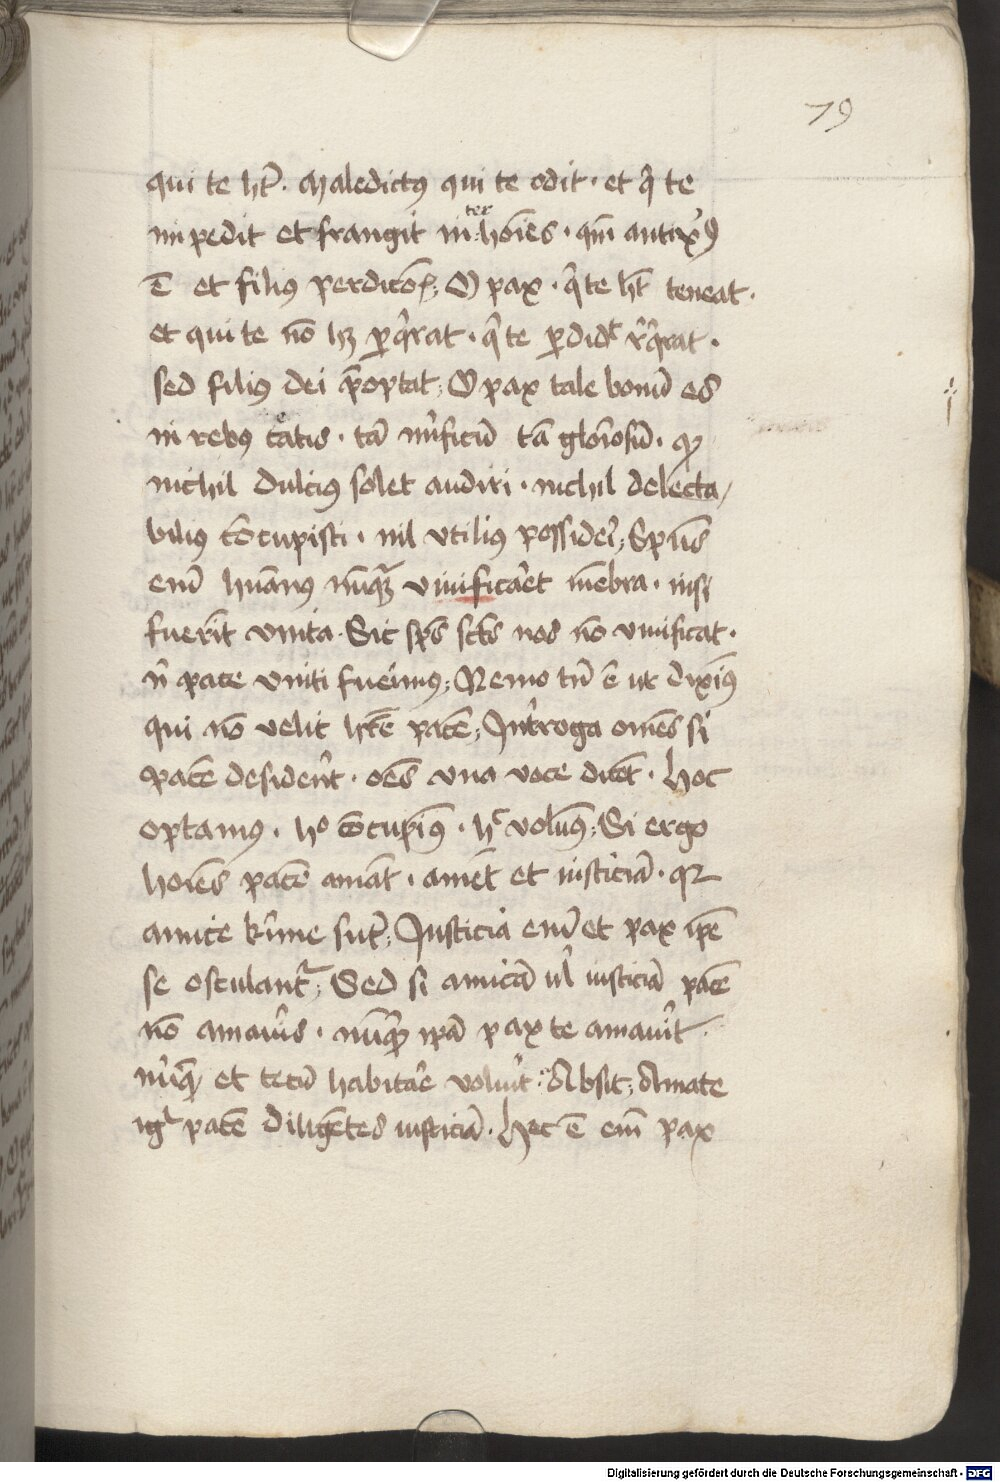 79
qui te ht̄. Maledictꝰ qui te odit · et q̄ te
impedit et frangit inter hoīes · qm̄ antixp̄s
ē et filiꝰ perdicōis; O pax · q̄ te ht̄ teneat ·
et qui te nō hꝫ ꝑq̄rat · q̄ te ꝑdidt rq̄rat ·
sed filiꝰ dei p̄optat; O pax tale bonū es
in rebꝰ c̄atis · tā mīficū tā gloriosū · ꝙ
nichil dulciꝰ solet audiri · nichil delecta
biliꝰ cōcupisti · nil vtiliꝰ possideri; Spūs
eni hūanꝰ nūqꝫ viuificaret mēbra · nisi
fuerīt vnita · Sic sp̄s sc̄ts nos nō viuificat ·
n̄ pace vniti fuerimꝰ; Nemo tn̄ ē ut diximꝰ
qui nō velit hr̄e pacē; Int̄roga omēs si
pacē desiderēt · oēs vna voce dicēt · hoc
optamꝰ · hͦ cōcupimꝰ · hᶜ volumꝰ; Si ergo
hoīes pacē amāt · amēt et iusticiā · qꝛ
amice ... sūt; Justicia enī et pax ip̄e
se osculant̄; Sed si amicā ul̄ iusticiā pacē
nō amaūis · nūqꝫ ipā pax te amaūit
nūqꝫ et tecū habitare voluīt · Absit; Amate
igͭ pacē diligētes iusticiā · hec ē enī pax
Digitalisierung gefördert durch die Deutsche Forschungsgemeinschaft · DFG